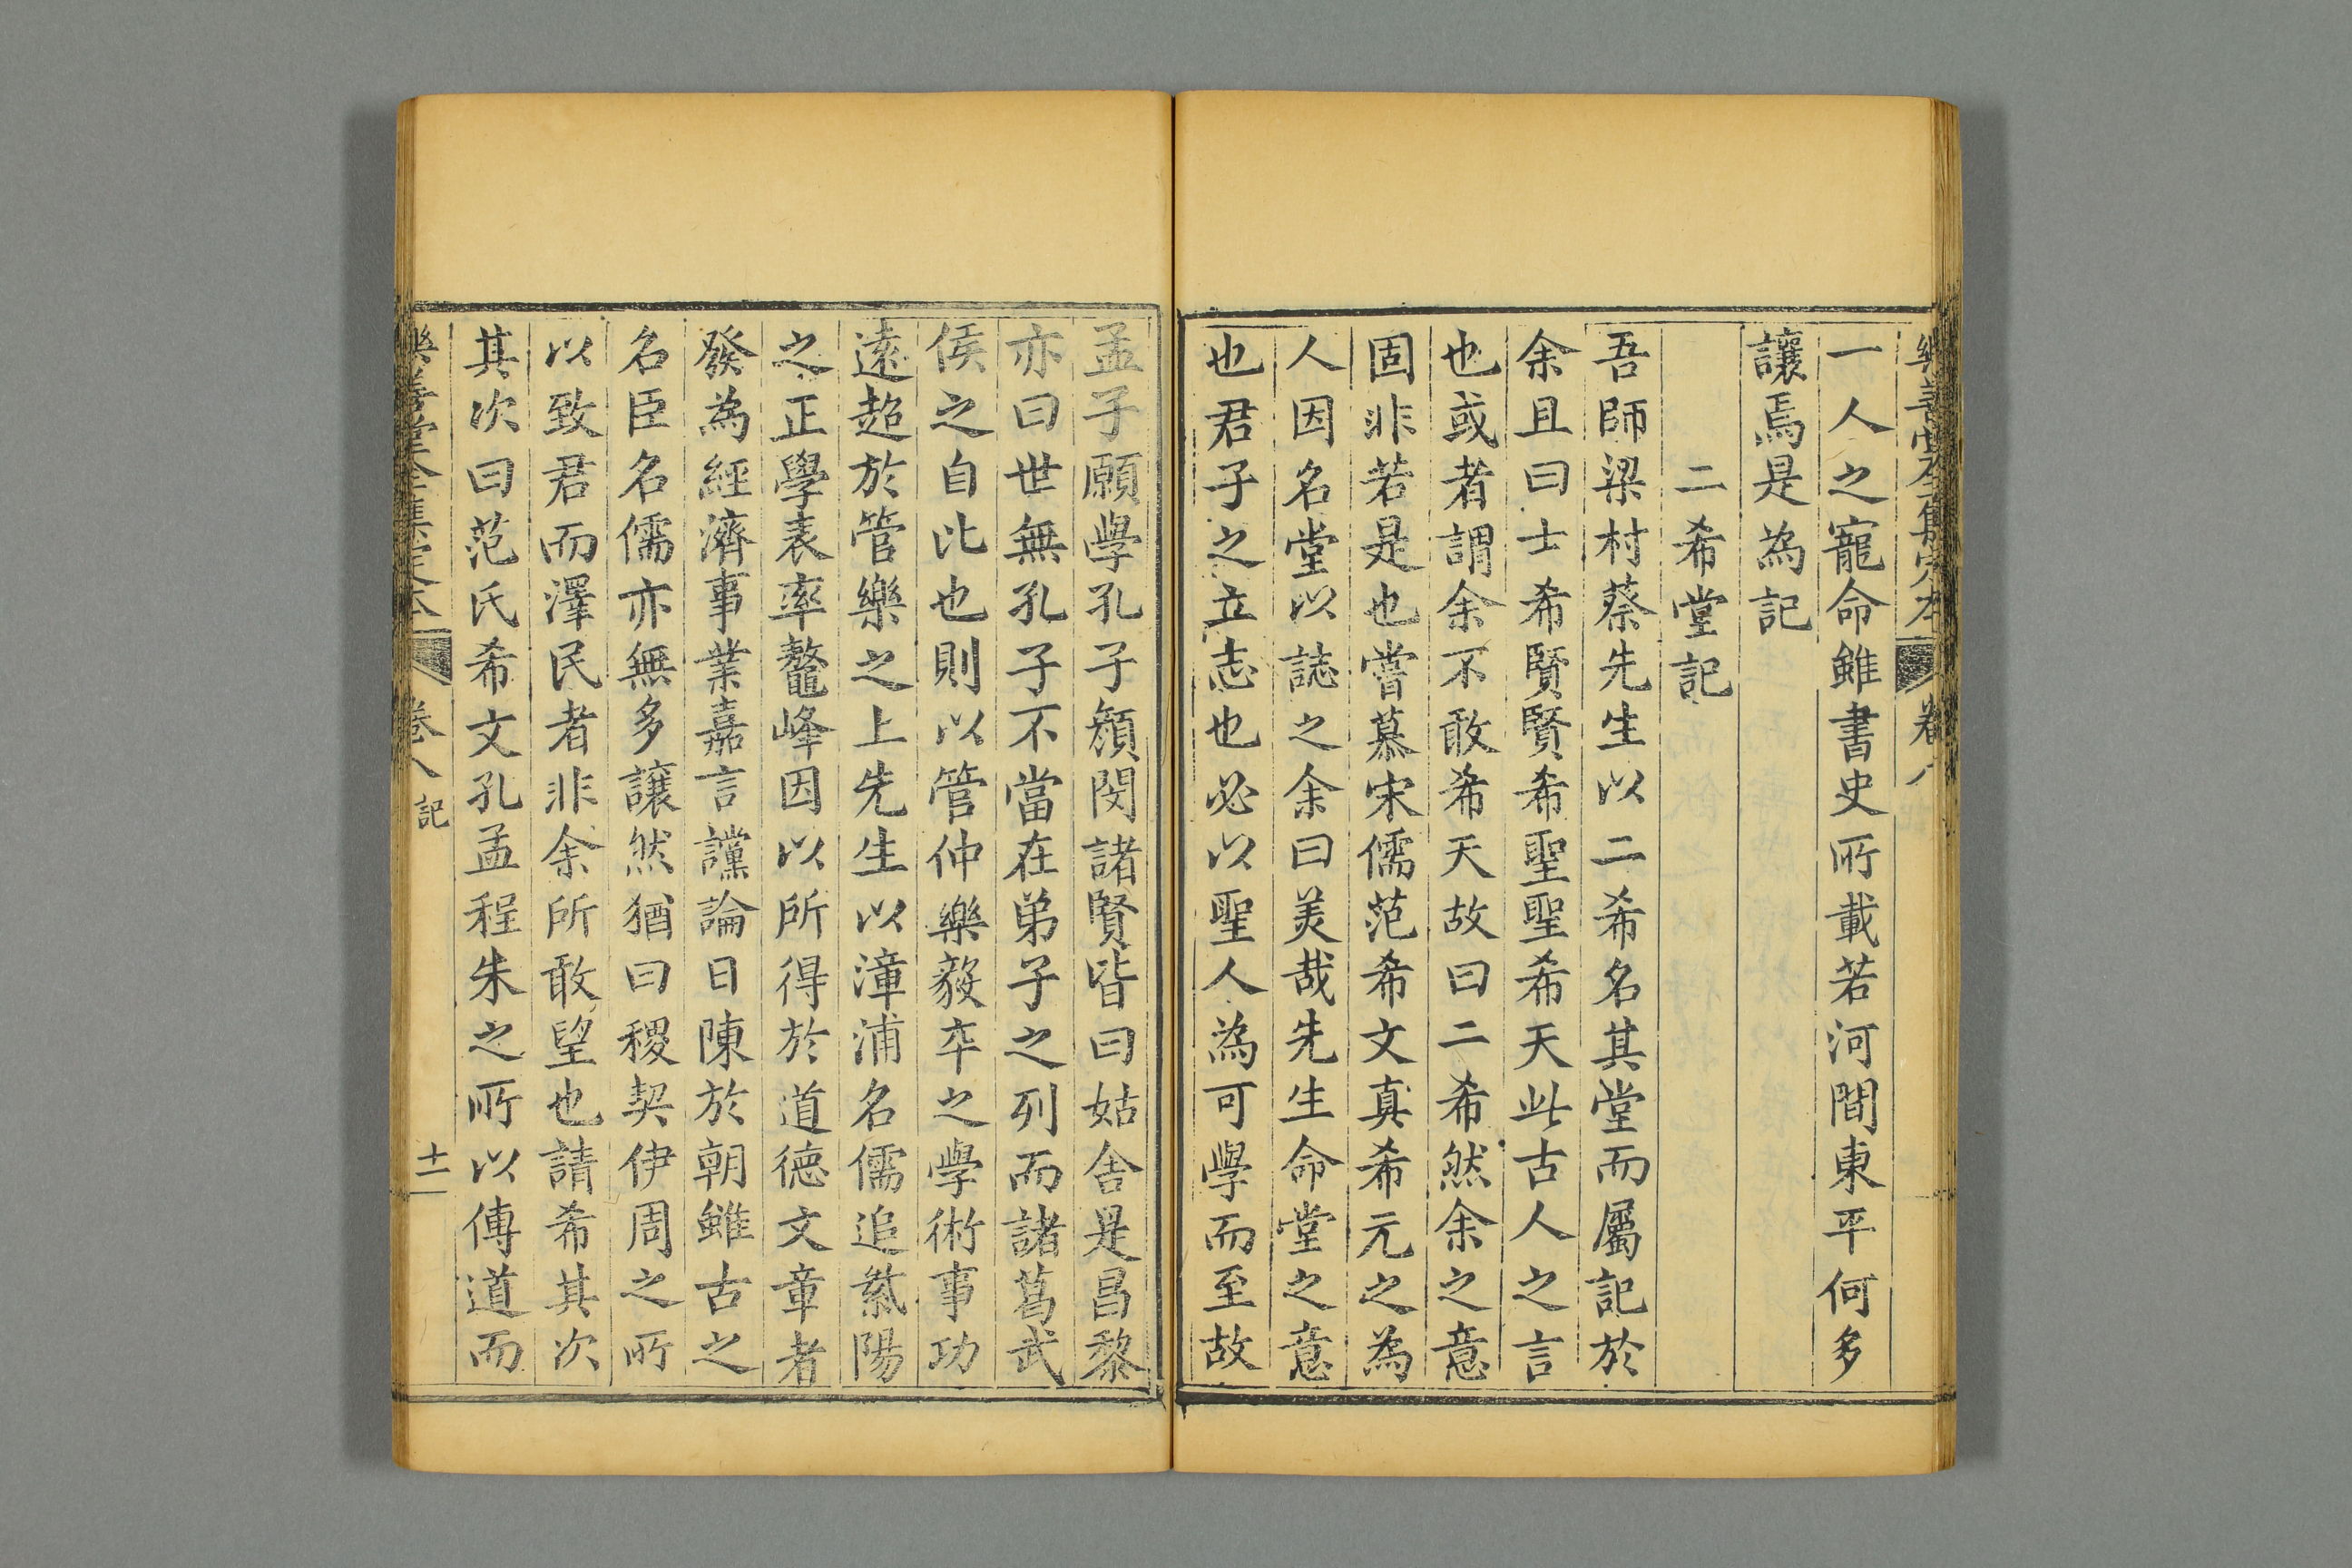 樂善堂全集定本 卷八
一人之寵命雖書史所載若河間東平何多
讓焉是為記
二希堂記
吾師梁村蔡先生以二希名其堂而屬記於
余且曰士希賢賢希聖聖希天此古人之言
也或者謂余不敢希天故曰二希然余之意
固非若是也嘗慕宋儒范希文真希元之為
人因名堂以誌之余曰美哉先生命堂之意
也君子之立志也必以聖人為可學而至故
孟子願學孔子顏閔諸賢皆曰姑舍是昌黎
亦曰世無孔子不當在弟子之列而諸葛武
侯之自比也則以管仲樂毅卒之學術事功
遠超於管樂之上先生以漳浦名儒追紫陽
之正學表率鼇峰因以所得於道德文章者
發為經濟事業嘉言讜論日陳於朝雖古之
名臣名儒亦無多讓然猶曰稷契伊周之所
以致君而澤民者非余所敢望也請希其次
其次曰范氏希文孔孟程朱之所以傳道而
樂善堂全集定本 卷八 記 十一